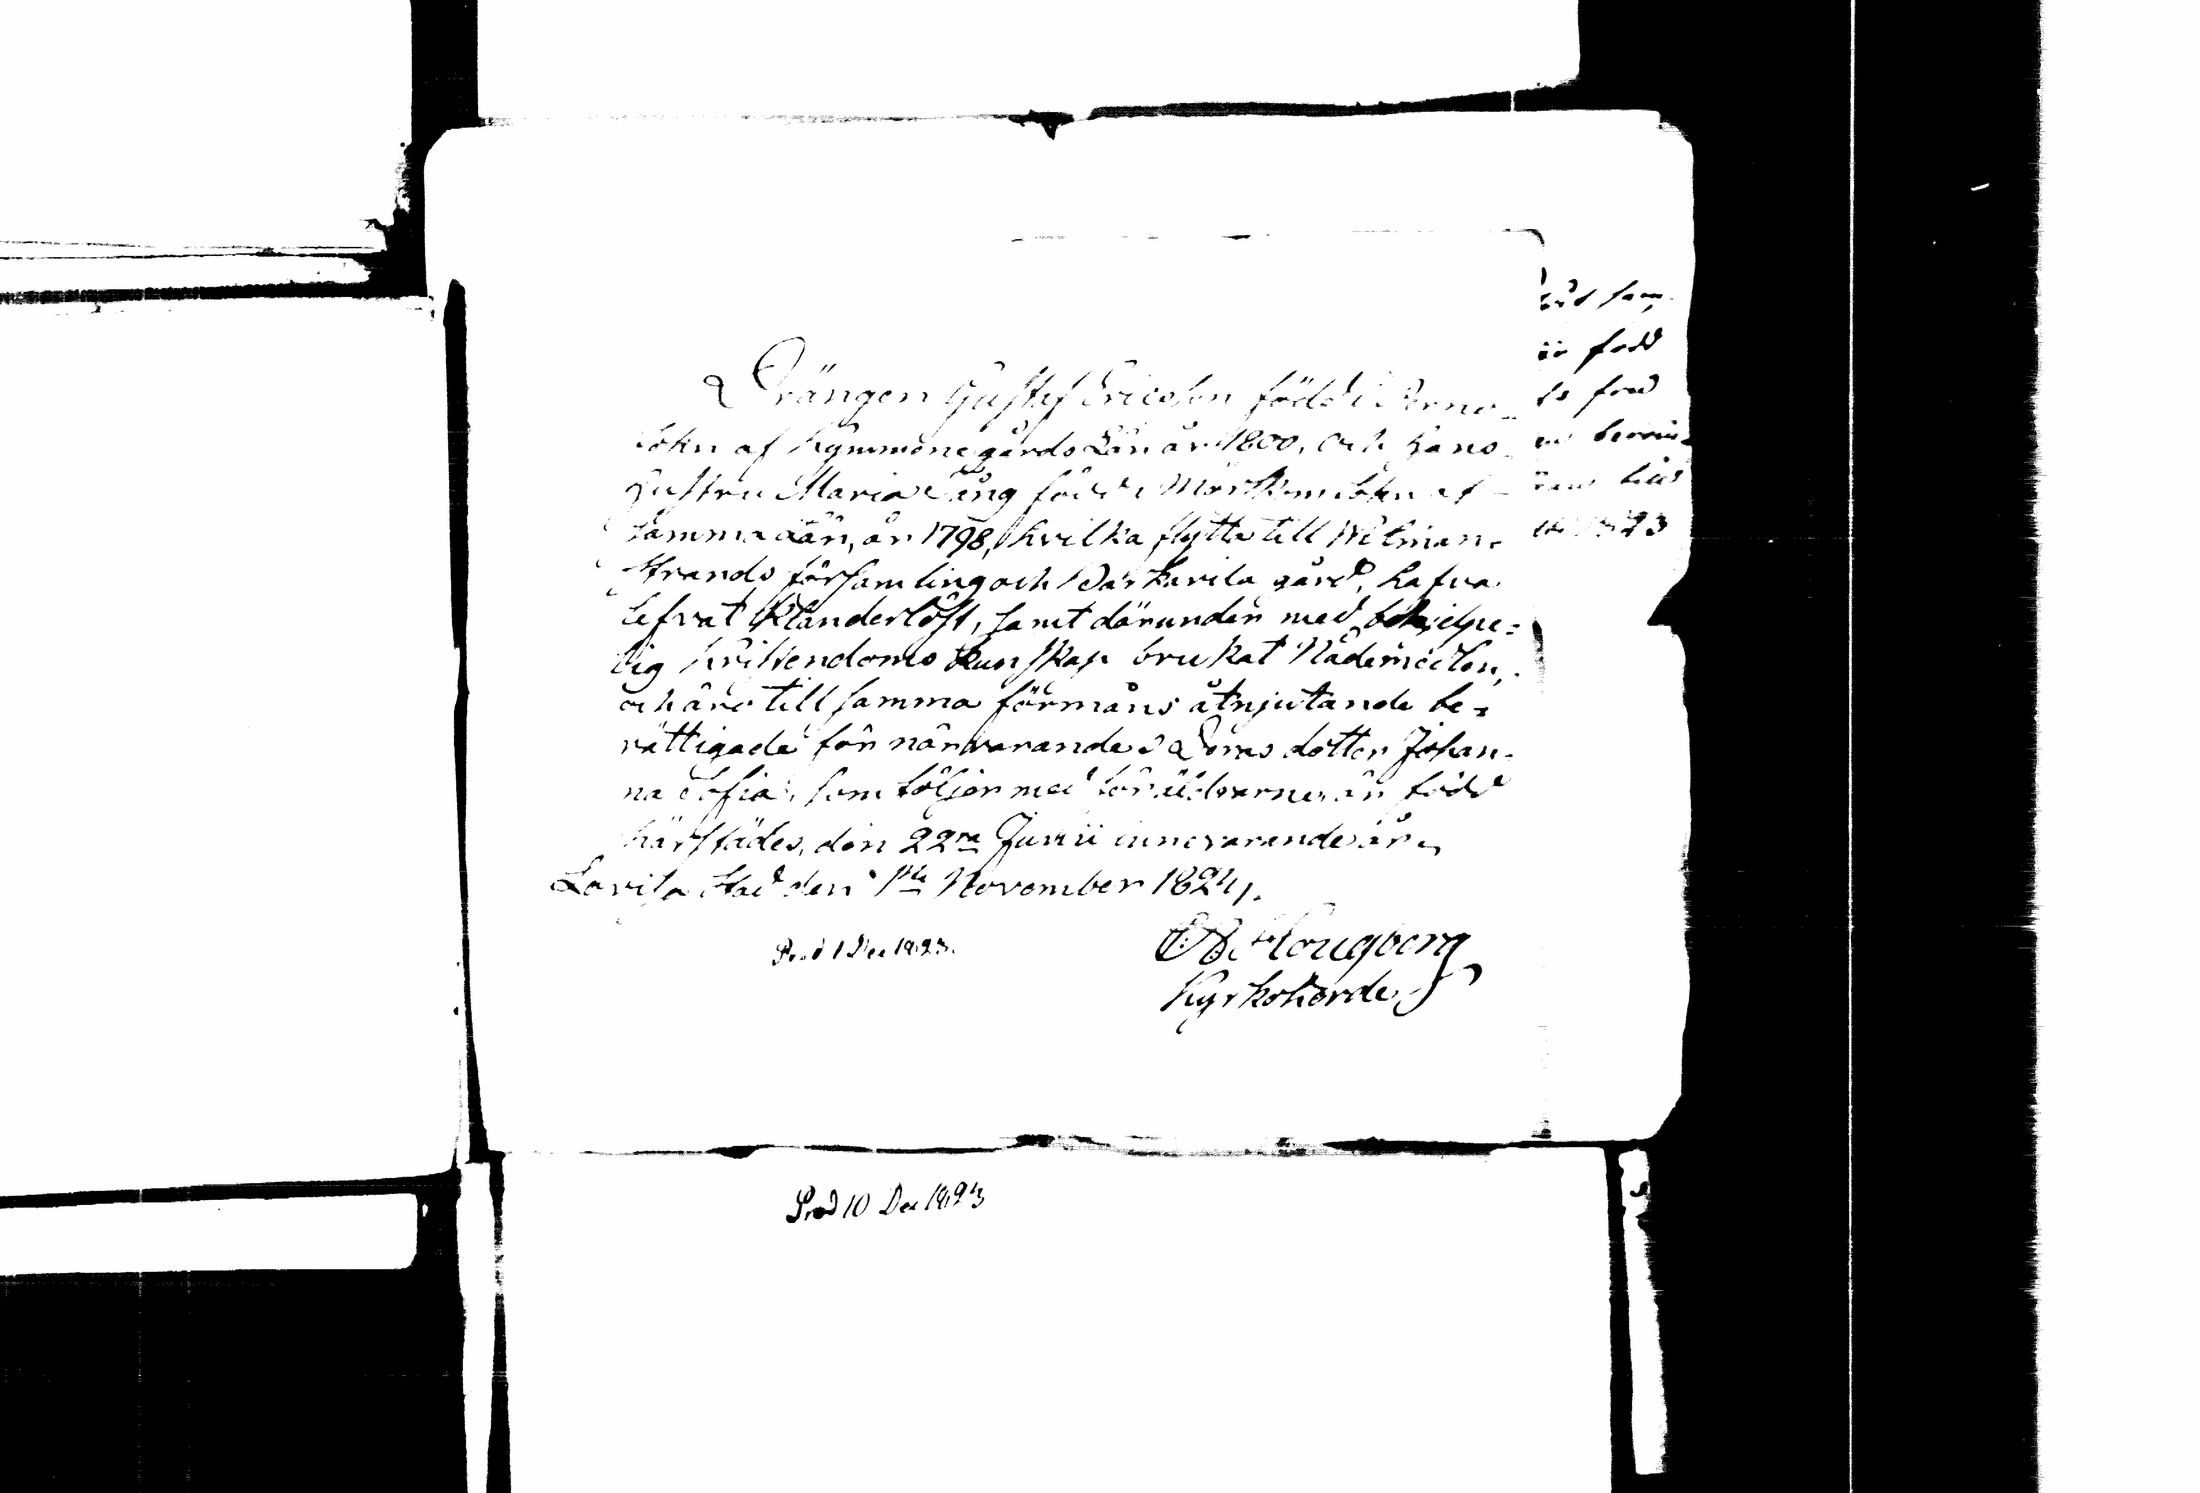 Drängen Gustaf Ericsson född i Perno
Sokn af Kymmenegårds Län år 1800, och hans
Hustru Maria Lång född i Mörskom Sokn af
samma Län, år 1798, hvilka flytta till Wilman-
strands församling och Karkarila gård, hafva
lefvat Klanderlöst, samt därunder med behjelpe-
lig kristendoms Kunskap brukat Nådemedlen,
och äro till samma förmåns åtnjutande be-
rättigade för närvarande. Deras dotter Johan-
na Sofia, som följer med föräldrarne, är född
härstädes, den 22ra Junii innevarande år.
Lovisa Stad den 1ste November 1824.
Hougberg
Kyrkoherde
Prod 1 Dec 1823.
Prod 10 Dec 1823
född
1823